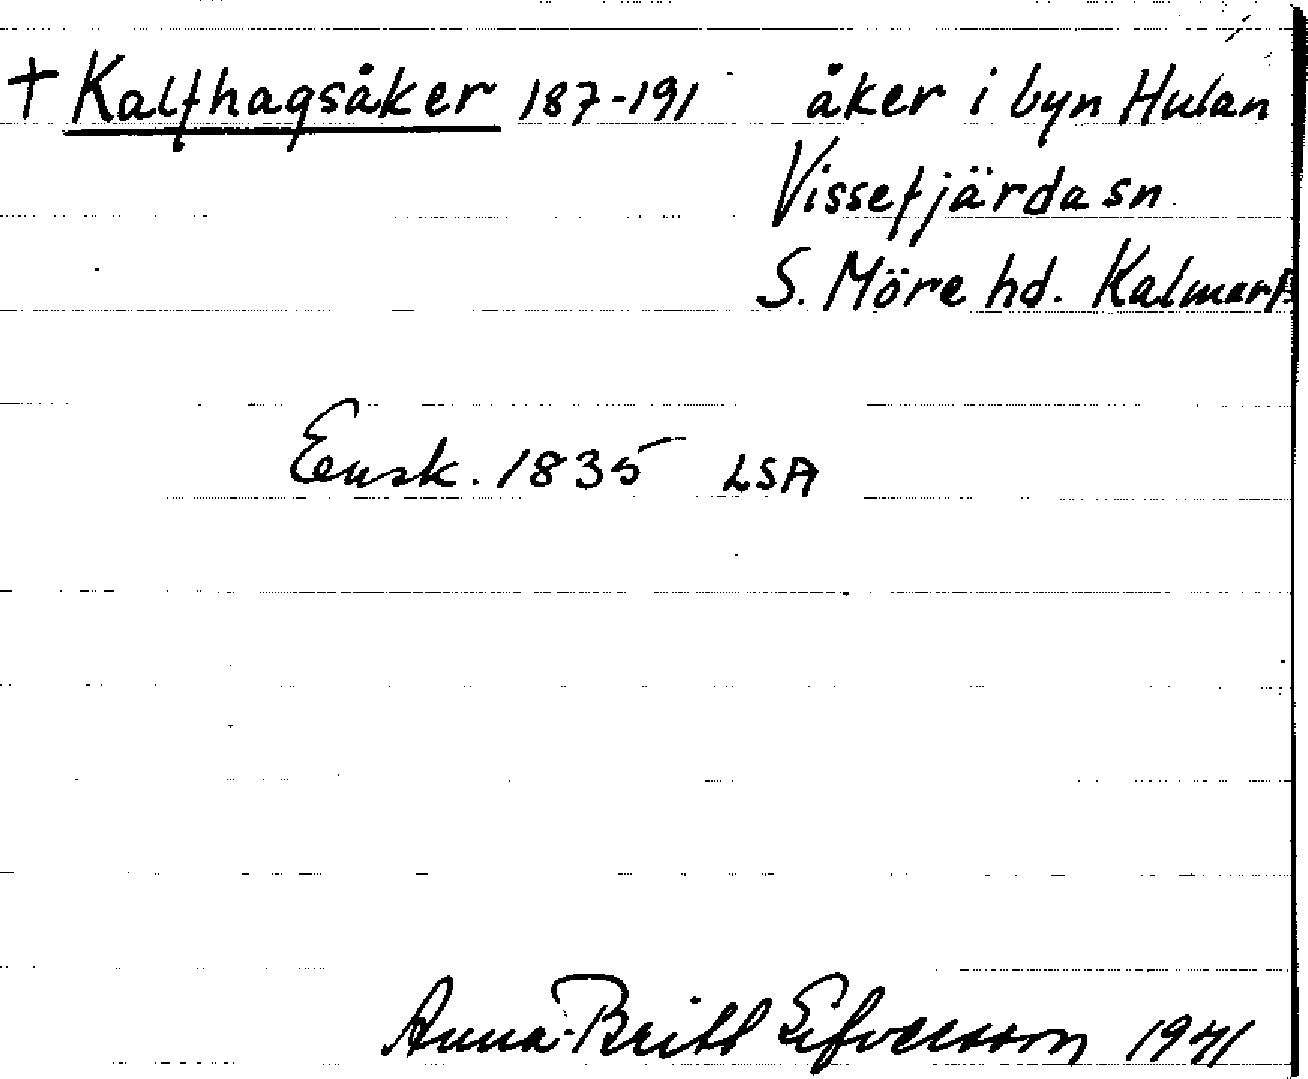 † Kalfhagsåker 187-191 åker i byn Hulan
Vissefjärda sn
S. Möre hd. Kalmar
Ensk. 1835 LSA
Anna-Britt Sifversson 1941